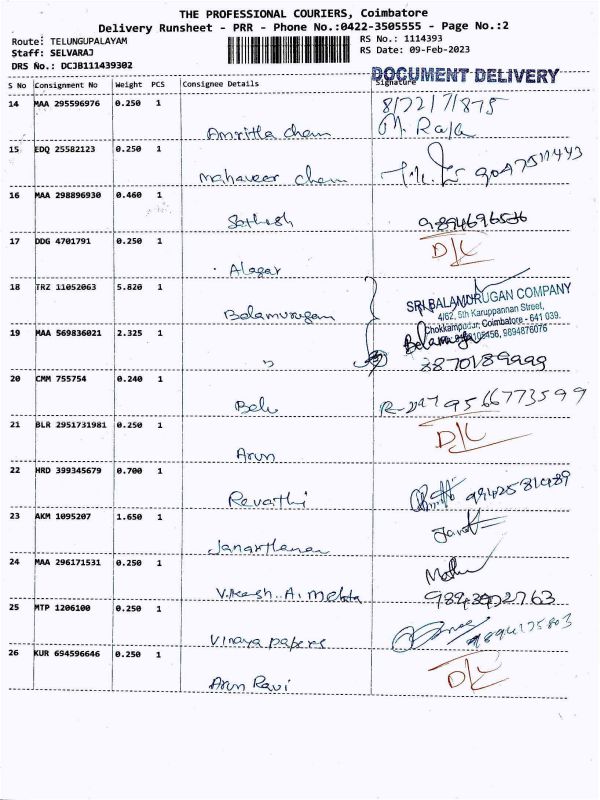 THE PROFESSIONAL COURIERS, Coimbatore
Delivery Runsheet - PRR - Phone No.:0422-3505555 - Page No.:2
Route: TELUNGUPALAYAM RS No.: 1114393
Staff: SELVARAJ RS Date: 09-Feb-2023
DRS No.: DCJB111439302
DOCUMENT DELIVERY
S No Consignment No Weight PCS Consignee Details Signature
14 MAA 295596976 0.250 1
M. Raja
15 EDQ 25582123 0.250 1
mahaveer cham
16 MAA 298896930 0.460 1
Sathesh
17 DDG 4701791 0.250 1
Alagar D/L
18 TRZ 11052063 5.820 1
Balamurugan
SRI BALAMURUGAN COMPANY
4/62, 5th Karuppannan Street,
Chokkampudur, Coimbatore - 641 039.
9894876076
19 MAA 569836021 2.325 1
"
20 CMM 755754 0.240 1
9566773599
21 BLR 2951731981 0.250 1
Arun D/L
22 HRD 399345679 0.700 1
Revathi
23 AKM 1095207 1.650 1
Janarthanan
24 MAA 296171531 0.250 1
Vikash. A. Mehta
25 MTP 1206100 0.250 1
Vinaya papers
26 KUR 694596646 0.250 1
Arun Ravi D/L